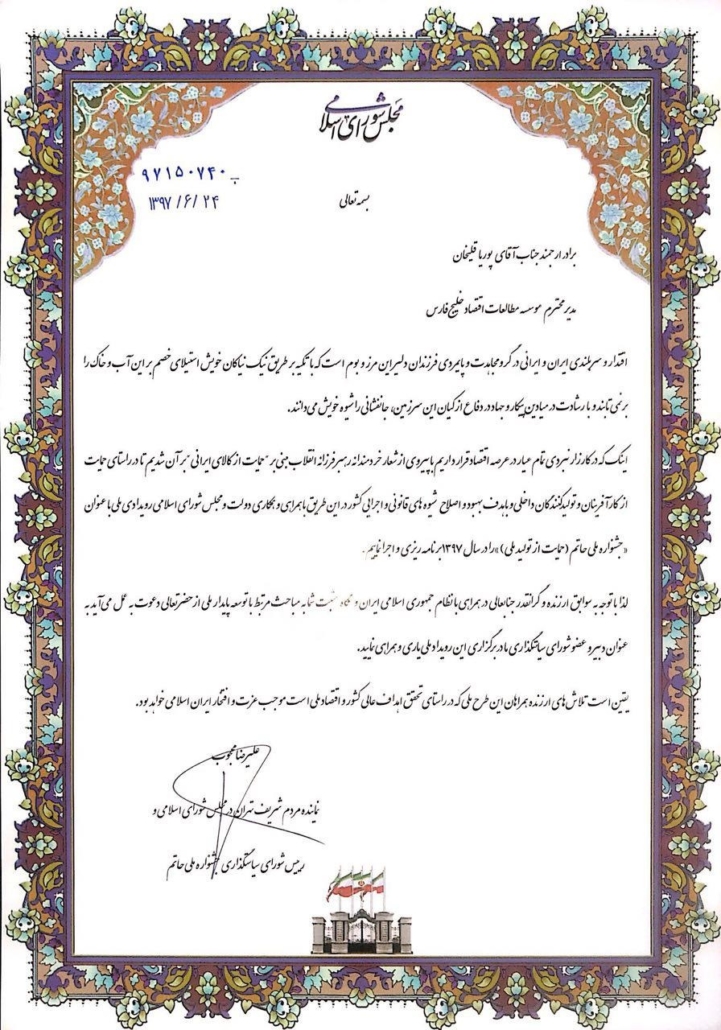 مجلس شورای اسلامی
۹۷۱۵۰۷۴۰ ب
۱۳۹۷/۶/۲۴
بسمه تعالی
برادر ارجمند جناب آقای پوریا قلیخان
مدیر محترم موسسه مطالعات اقتصاد خلیج فارس
اقتدار و سربلندی ایران و ایرانی در گرو مجاهدت و پایمردی فرزندان دلیر این مرز و بوم است که با تکیه بر طریق نیک نیاکان خویش استیلای خصم بر این آب و خاک را
بر نمی تابند و با رشادت در میادین پیکار و جهاد در دفاع از کیان این سرزمین، جانفشانی را شیوه خویش می دانند.
اینک که در کارزار نبردی تمام عیار در عرصه اقتصاد قرار داریم با پیروی از شعار خردمندانه رهبر فرزانه انقلاب مبنی بر "حمایت از کالای ایرانی" بر آن شدیم تا در راستای حمایت
از کارآفرینان و تولیدکنندگان داخلی و با هدف بهبود و اصلاح شیوه های قانونی و اجرایی کشور در این طریق با همراهی و همکاری دولت و مجلس شورای اسلامی رویدادی ملی با عنوان
«جشنواره ملی حاتم (حمایت از تولید ملی)» را در سال ۱۳۹۷ برنامه ریزی و اجرا نماییم.
لذا با توجه به سوابق ارزنده و گرانقدر جنابعالی در همراهی با نظام جمهوری اسلامی ایران و نگاه مثبت شما به مباحث مرتبط با توسعه پایدار ملی از حضرتعالی دعوت به عمل می آید به
عنوان دبیر و عضو شورای سیاستگذاری ما در برگزاری این رویداد ملی یاری و همراهی نمایید.
یقین است تلاش های ارزنده همراهان این طرح ملی که در راستای تحقق اهداف عالی کشور و اقتصاد ملی است موجب عزت و افتخار ایران اسلامی خواهد بود.
علیرضا محجوب
نماینده مردم شریف تهران در مجلس شورای اسلامی و
رییس شورای سیاستگذاری جشنواره ملی حاتم